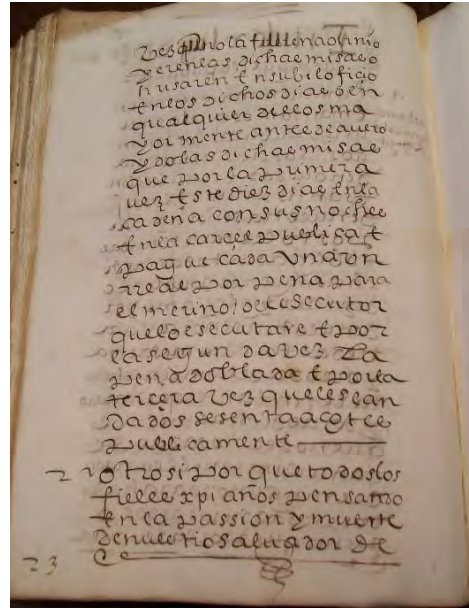 y eren las dichas misas o
h usaren en su bil oficio
en los dichos dias o en
qualquier dellos ma
yor mente antes de aver o
ydo las dichas misas
que por la primera
vez este diez dias en la
cadena con sus noches
en la carcel publica e
pague cada un a un
rreal por pena para
el merino o el esecutor
que lo esecutare e por
la segunda vez la
pena doblada e por la
tercera vez que les sean
dados sesenta açotes
publicamente
2 otrosi por que todos los
fieles xpianos pensando
en la passion y muerte
de nuestro salvador de
23